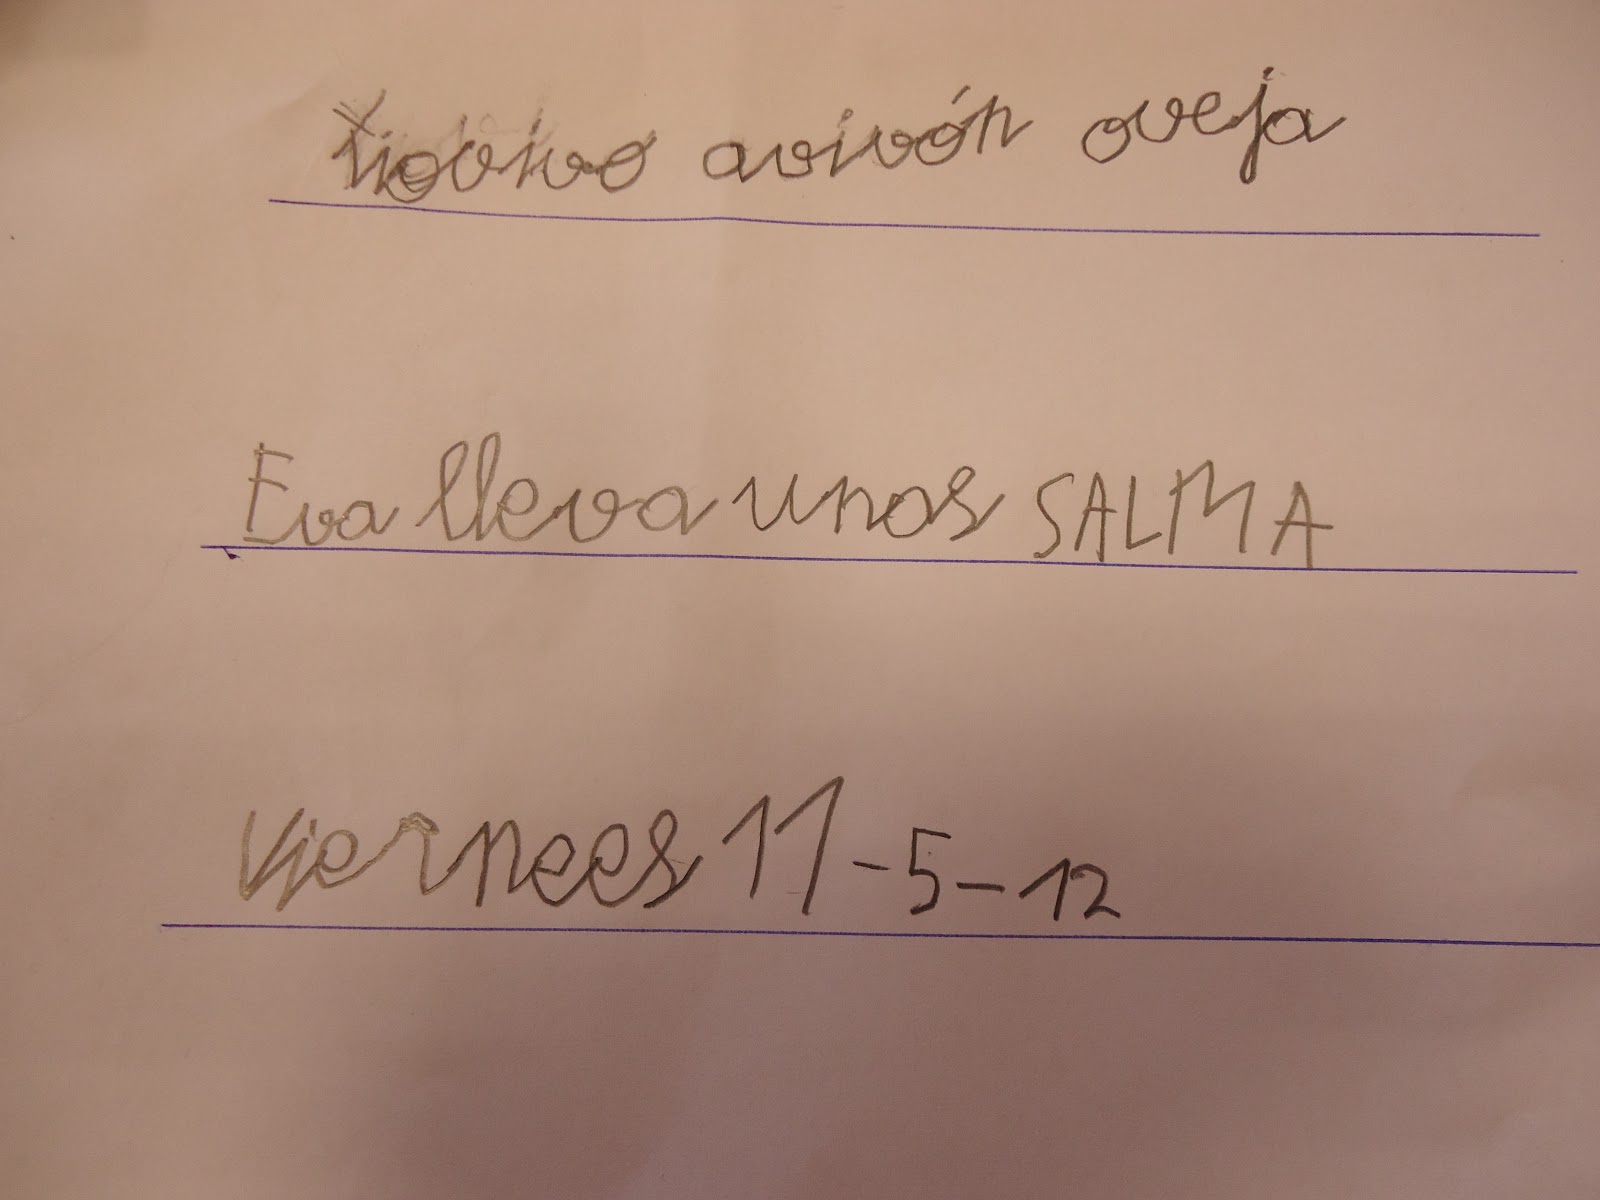 tiovivo avivón oveja
Eva lleva unos SALMA
Viernees 11-5-12